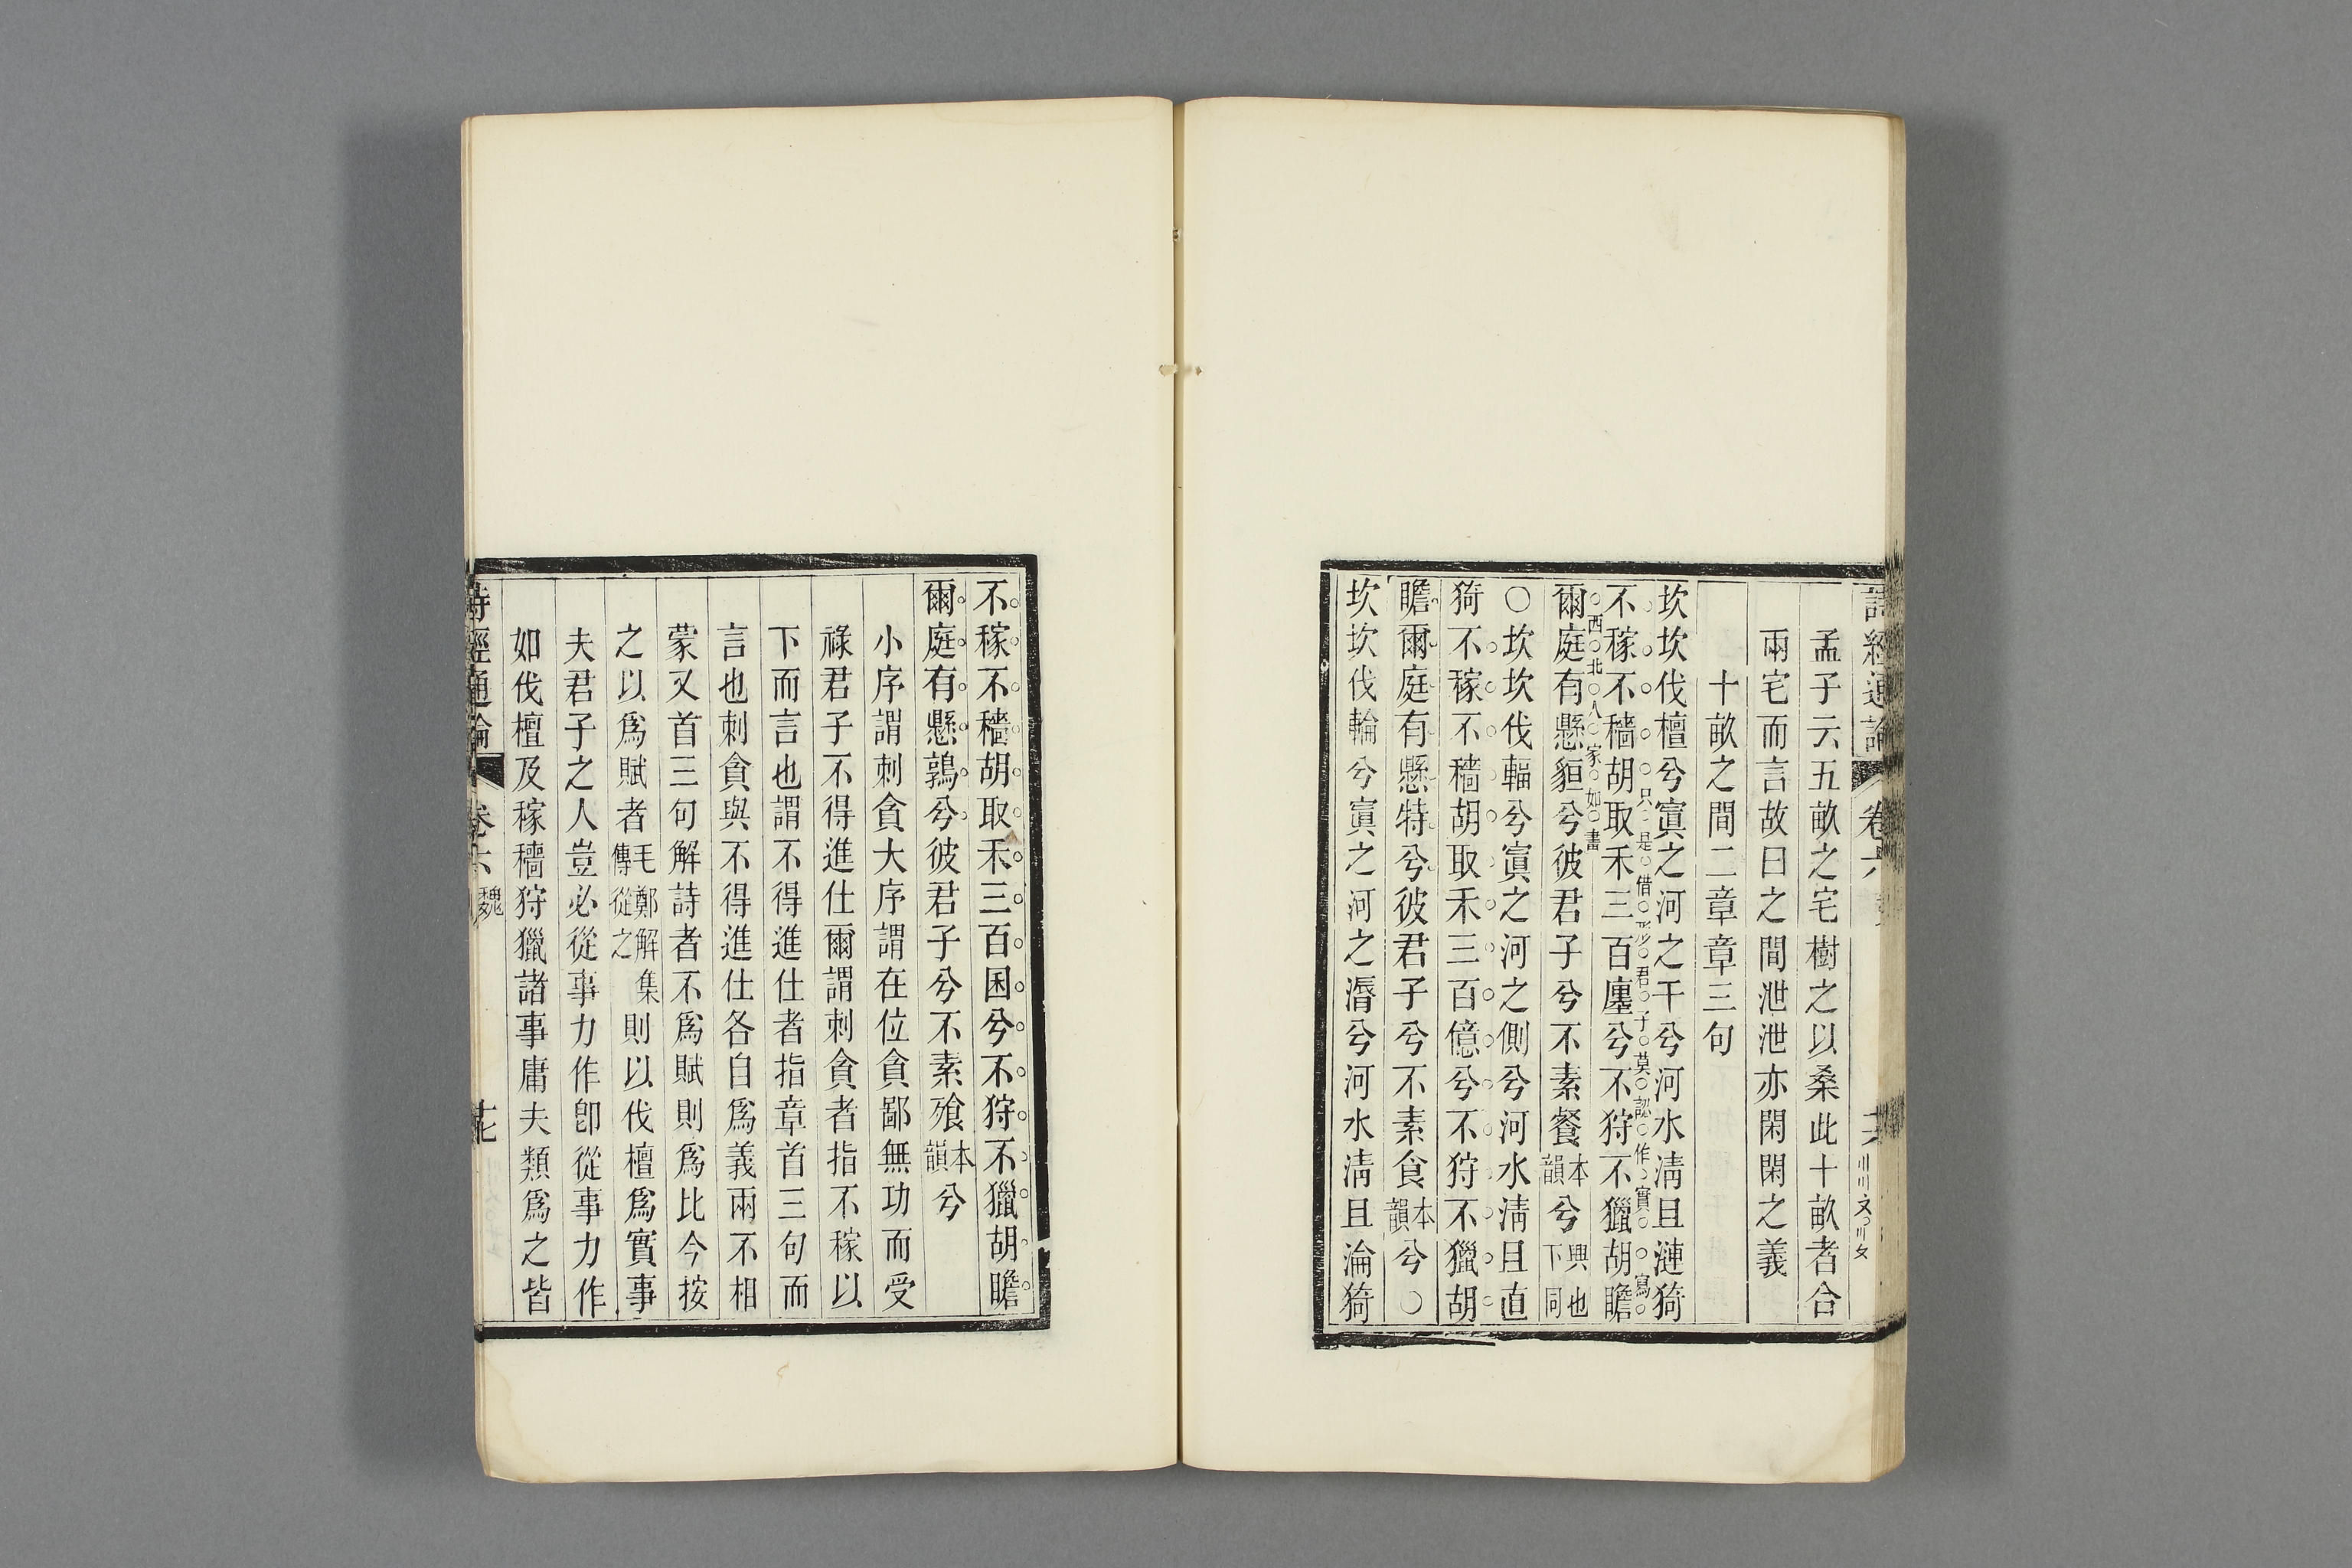 詩經通論 卷六
孟子云五畝之宅樹之以桑此十畝者合
兩宅而言故曰之間泄泄亦閑閑之義
十畝之間二章章三句
坎坎伐檀兮寘之河之干兮河水淸且漣猗
只是借形君子莫認作實寫
不稼不穡胡取禾三百廛兮不狩不獵胡瞻
西北人家如畫
爾庭有懸貆兮彼君子兮不素餐本韻兮興也下同
○坎坎伐輻兮寘之河之側兮河水淸且直
猗不稼不穡胡取禾三百億兮不狩不獵胡
瞻爾庭有懸特兮彼君子兮不素食本韻兮○
坎坎伐輪兮寘之河之漘兮河水淸且淪猗
不稼不穡胡取禾三百囷兮不狩不獵胡瞻
爾庭有懸鶉兮彼君子兮不素飧本韻兮
小序謂刺貪大序謂在位貪鄙無功而受
祿君子不得進仕爾謂刺貪者指不稼以
下而言也謂不得進仕者指章首三句而
言也刺貪與不得進仕各自爲義兩不相
蒙又首三句解詩者不爲賦則爲比今按
之以爲賦者毛鄭解集傳從之則以伐檀爲實事
夫君子之人豈必從事力作卽從事力作
如伐檀及稼穡狩獵諸事庸夫類爲之皆
詩經通論 卷六 魏